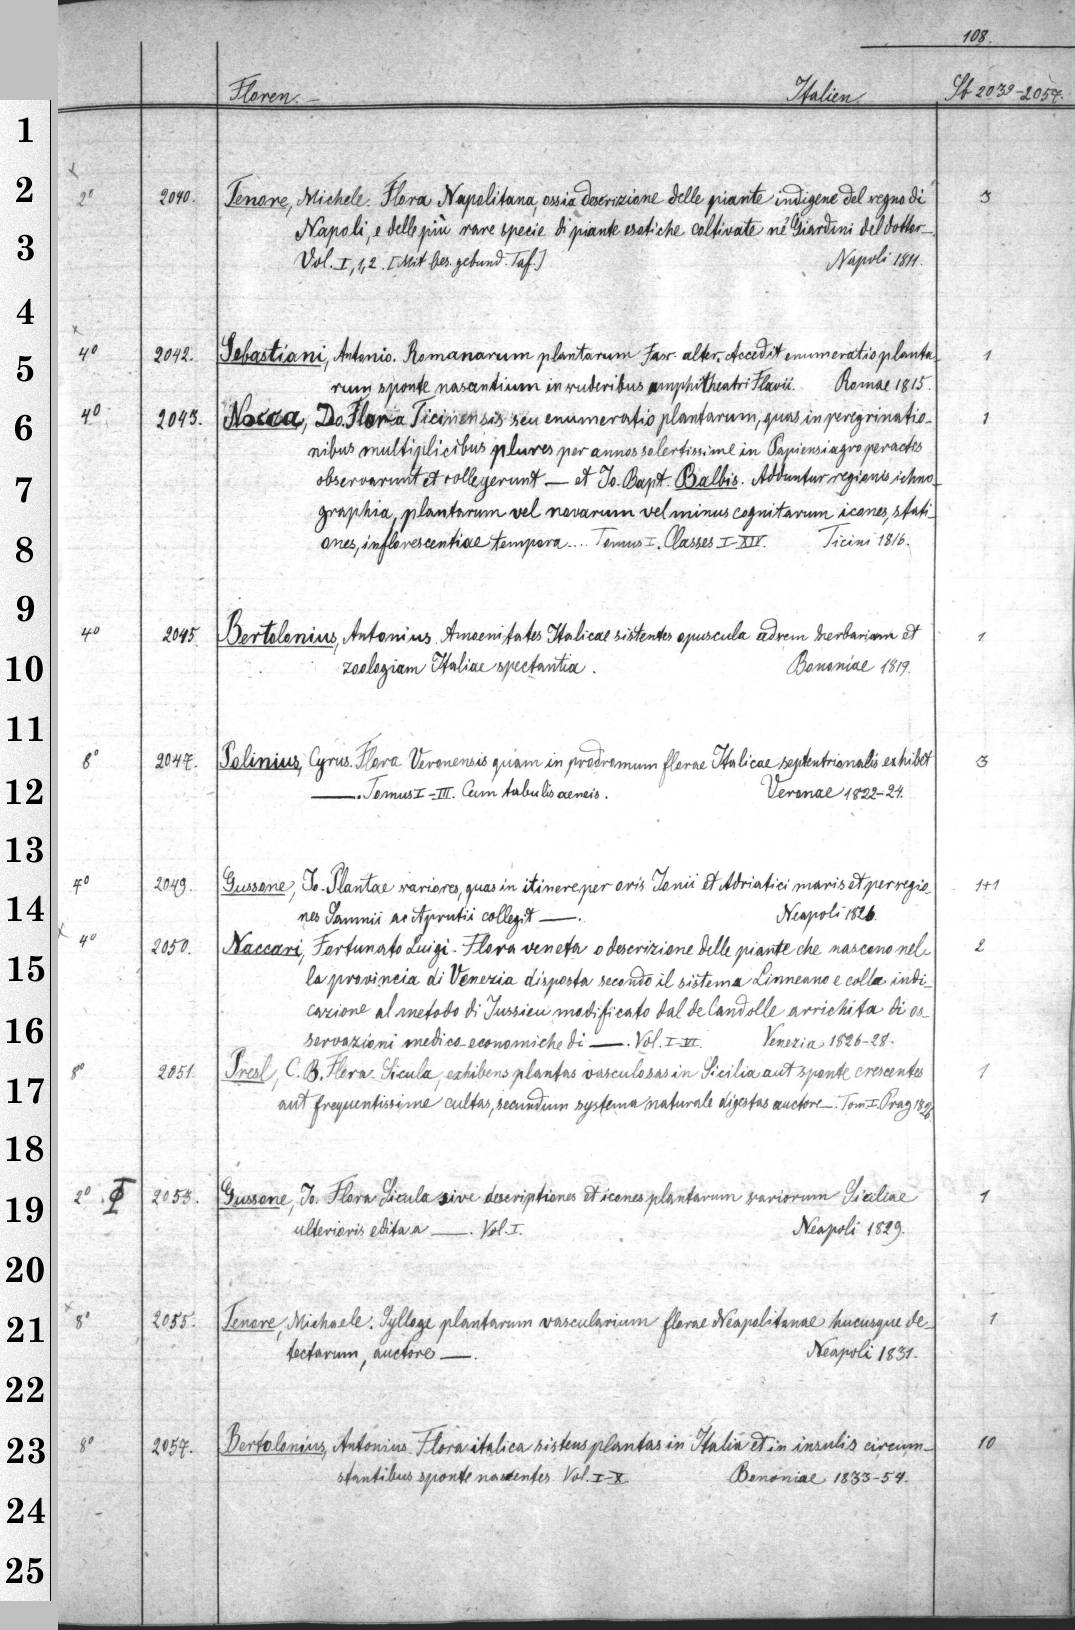 108.
Floren. — Italien. St 2039-2057.
1
2
3
4
5
6
7
8
9
10
11
12
13
14
15
16
17
18
19
20
21
22
23
24
25
x
2° 2040. Tenore, Michele. Flora Napolitana, ossia descrizione delle piante indigene del regno di 3
Napoli, e delle più rare specie di piante esotiche coltivate ne' Giardini del dottor —.
Vol. I, 1, 2. [Mit bes. gebund. Taf.] Napoli 1811.
x
4° 2042. Sebastiani, Antonio. Romanarum plantarum Fasc. alter. Accedit enumeratio planta- 1
rum sponte nascentium in ruderibus amphitheatri Flavii. Romae 1815.
4° 2043. Nocca, Do. Flora Ticinensis seu enumeratio plantarum, quas in peregrinatio- 1
nibus multiplicibus plures per annos solertissime in Papiensi agro peractis
observarunt et collegerunt — et Jo. Bapt. Balbis. Adduntur regionis ichno-
graphia, plantarum vel novarum vel minus cognitarum icones, stati-
ones, inflorescentiae tempora.... Tomus I. Classes I-XIV. Ticini 1816.
4° 2045 Bertolonius, Antonius. Amoenitates Italicae sistentes opuscula ad rem herbariam et 1
zoologiam Italiae spectantia. Bononiae 1819.
8° 2047. Polinius, Cyrus. Flora Veronensis quam in prodromum florae Italicae septentrionalis exhibet 3
—. Tomus I-III. Cum tabulis aeneis. Veronae 1822-24.
4° 2049. Gussone, Jo. Plantae rariores, quas in itinere per oris Jonii et Adriatici maris et per regio- 1+1
nes Samnii ac Aprutii collegit —. Neapoli 1826.
x 4° 2050. Naccari, Fortunato Luigi. Flora veneta o descrizione delle piante che nascono nel- 2
la provincia di Venezia disposta secondo il sistema Linneano e colla indi-
cazione al metodo di Jussieu modificato dal de Candolle arrichita di os-
servazioni medico-economiche di —. Vol. I-VI. Venezia 1826-28.
8° 2051. Presl, C. B. Flora Sicula, exhibens plantas vasculosas in Sicilia aut sponte crescentes 1
aut frequentissime cultas, secundum systema naturale digestas auctore —. Tom I. Prag 1826.
2° 2053. Gussone, Jo. Flora Sicula sive descriptiones et icones plantarum rariorum Siciliae 1
ulterioris edita a —. Vol. I. Neapoli 1829.
x
8° 2055. Tenore, Michaele. Sylloge plantarum vascularium florae Neapolitanae hucusque de- 1
tectarum, auctore —. Neapoli 1831.
8° 2057. Bertolonius, Antonius. Flora italica sistens plantas in Italia et in insulis circum- 10
stantibus sponte nascentes Vol. I-X. Bononiae 1833-54.